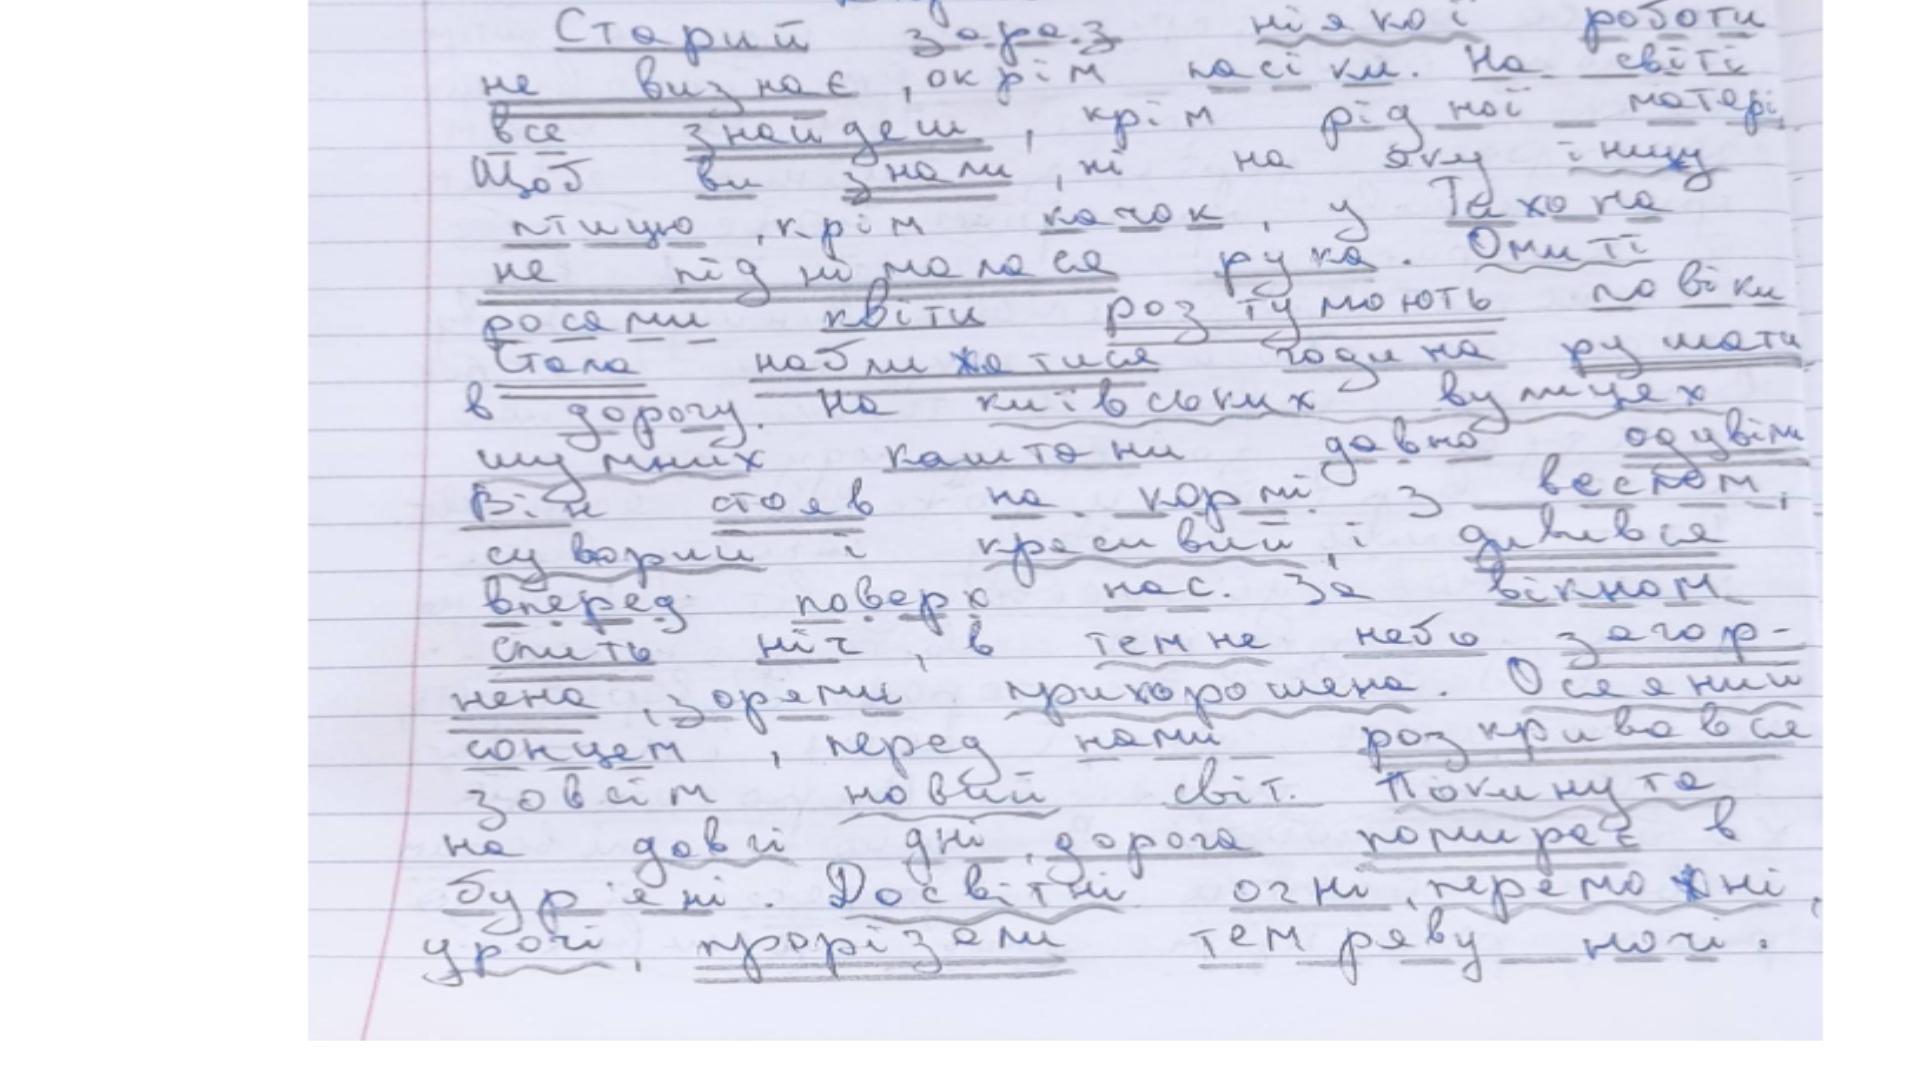 Старий зараз ніякої роботи
не визнає, окрім пасіки. На світі
все знайдеш, крім рідної матері.
Щоб ви знали, ні на яку іншу
птицю, крім качок, у Тахона
не піднімалася рука. Омиті
росами квіти розтуляють повіки
Стала наближатися година рушати
в дорогу. На київських вулицях
шумних каштани давно одцвіли
Він стояв на кормі з веслом,
суворий і красивий, і дивився
вперед поверх нас. За вікном
спить ніч, в темне небо загор-
нена, зорями прихорошена. Осяяний
сонцем, перед нами розкривався
зовсім новий світ. Покинута
на довгі дні, дорога помирає в
бур'яні. Досвітні огні, переможні,
урочі, прорізали темряву ночі.